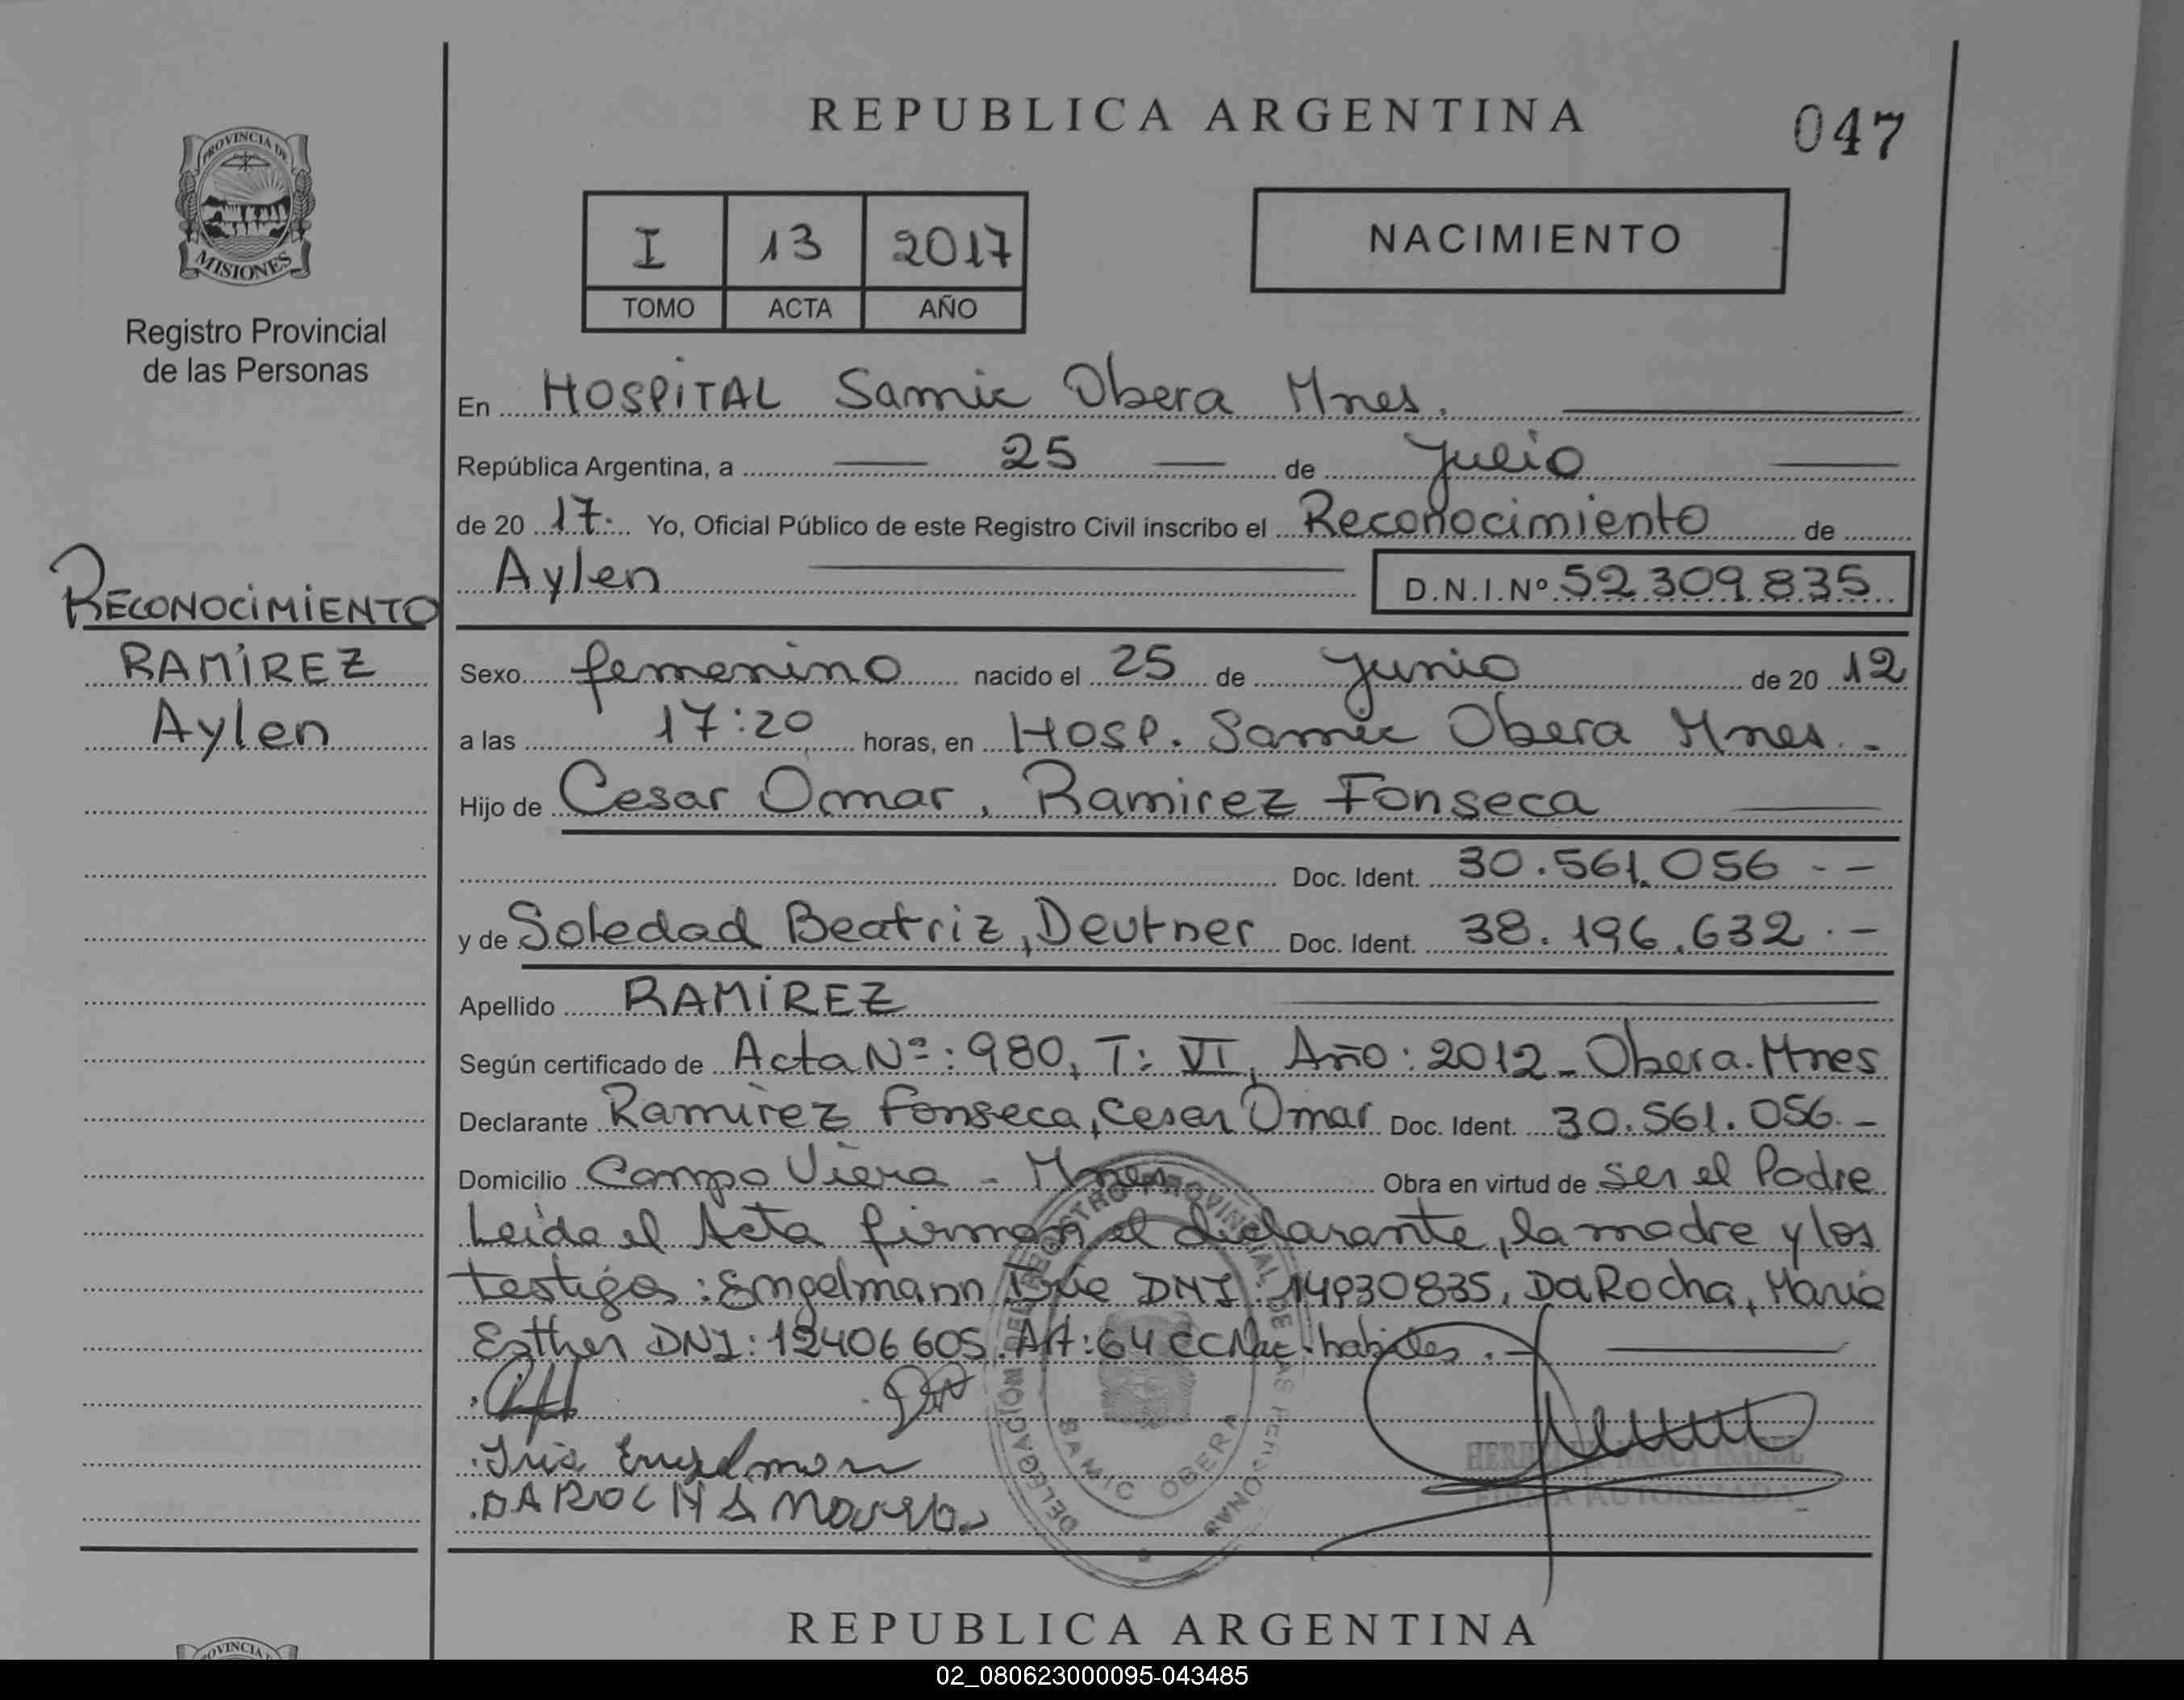 REPUBLICA ARGENTINA
047
PROVINCIA DE
MISIONES
Registro Provincial
de las Personas
I 13 2017
TOMO ACTA AÑO
NACIMIENTO
En HOSPITAL Samic Obera Mnes.
República Argentina, a 25 de Julio
de 20 17. Yo, Oficial Público de este Registro Civil inscribo el Reconocimiento de
Aylen D.N.I.Nº 52.309.835
RECONOCIMIENTO
RAMÍREZ
Aylen
Sexo femenino nacido el 25 de Junio de 20 12
a las 17:20 horas, en Hosp. Samic Obera Mnes.-
Hijo de Cesar Omar, Ramirez Fonseca
Doc. Ident. 30.561.056 --
y de Soledad Beatriz, Deutner Doc. Ident. 38.196.632.-
Apellido RAMÍREZ
Según certificado de Acta Nº: 980, T: VI, Año: 2012-Obera.Mnes
Declarante Ramirez Fonseca, Cesar Omar Doc. Ident. 30.561.056.-
Domicilio Campo Viera - Mnes Obra en virtud de ser el Padre
Leída el Acta firman el declarante, la madre y los
testigos: Engelmann DNI: 14930835, DaRocha, Maria
Esther DNI: 12406605. Art: 64 CCNac. habiles.-
DELEGACIÓN DEL REGISTRO PROVINCIAL DE LAS PERSONAS
SAMIC OBERA
Engelmon
DAROCHA
FIRMA AUTORIZADA
REPUBLICA ARGENTINA
02_080623000095-043485